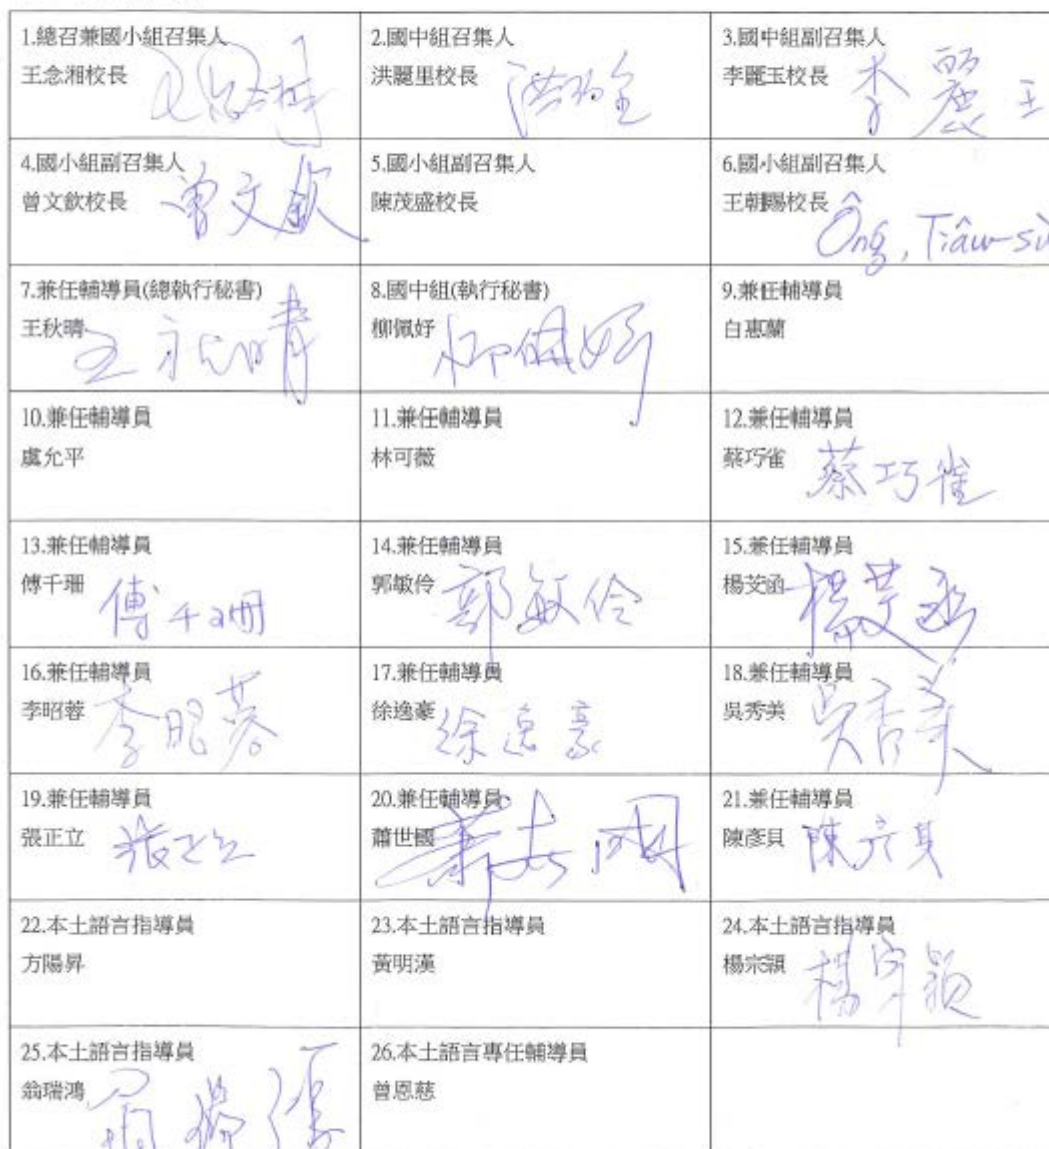 1.總召兼國小組召集人
王念湘校長
2.國中組召集人
洪麗里校長
3.國中組副召集人
李麗玉校長
李麗玉
4.國小組副召集人
曾文欽校長
曾文欽
5.國小組副召集人
陳茂盛校長
6.國小組副召集人
王朝賜校長
Ông, Tiâu-sù
7.兼任輔導員(總執行秘書)
王秋晴
王秋晴
8.國中組(執行秘書)
柳佩妤
柳佩妤
9.兼任輔導員
白惠蘭
10.兼任輔導員
虞允平
11.兼任輔導員
林可薇
12.兼任輔導員
蔡巧雀
蔡巧雀
13.兼任輔導員
傅千珊
傅千珊
14.兼任輔導員
郭敏伶
郭敏伶
15.兼任輔導員
楊芠函
楊芠函
16.兼任輔導員
李昭蓉
李昭蓉
17.兼任輔導員
徐逸豪
徐逸豪
18.兼任輔導員
吳秀美
吳秀美
19.兼任輔導員
張正立
張正立
20.兼任輔導員
蕭世國
蕭世國
21.兼任輔導員
陳彥貝
陳彥貝
22.本土語言指導員
方陽昇
23.本土語言指導員
黃明漢
24.本土語言指導員
楊宗頴
楊宗頴
25.本土語言指導員
翁瑞鴻
翁瑞鴻
26.本土語言專任輔導員
曾恩慈